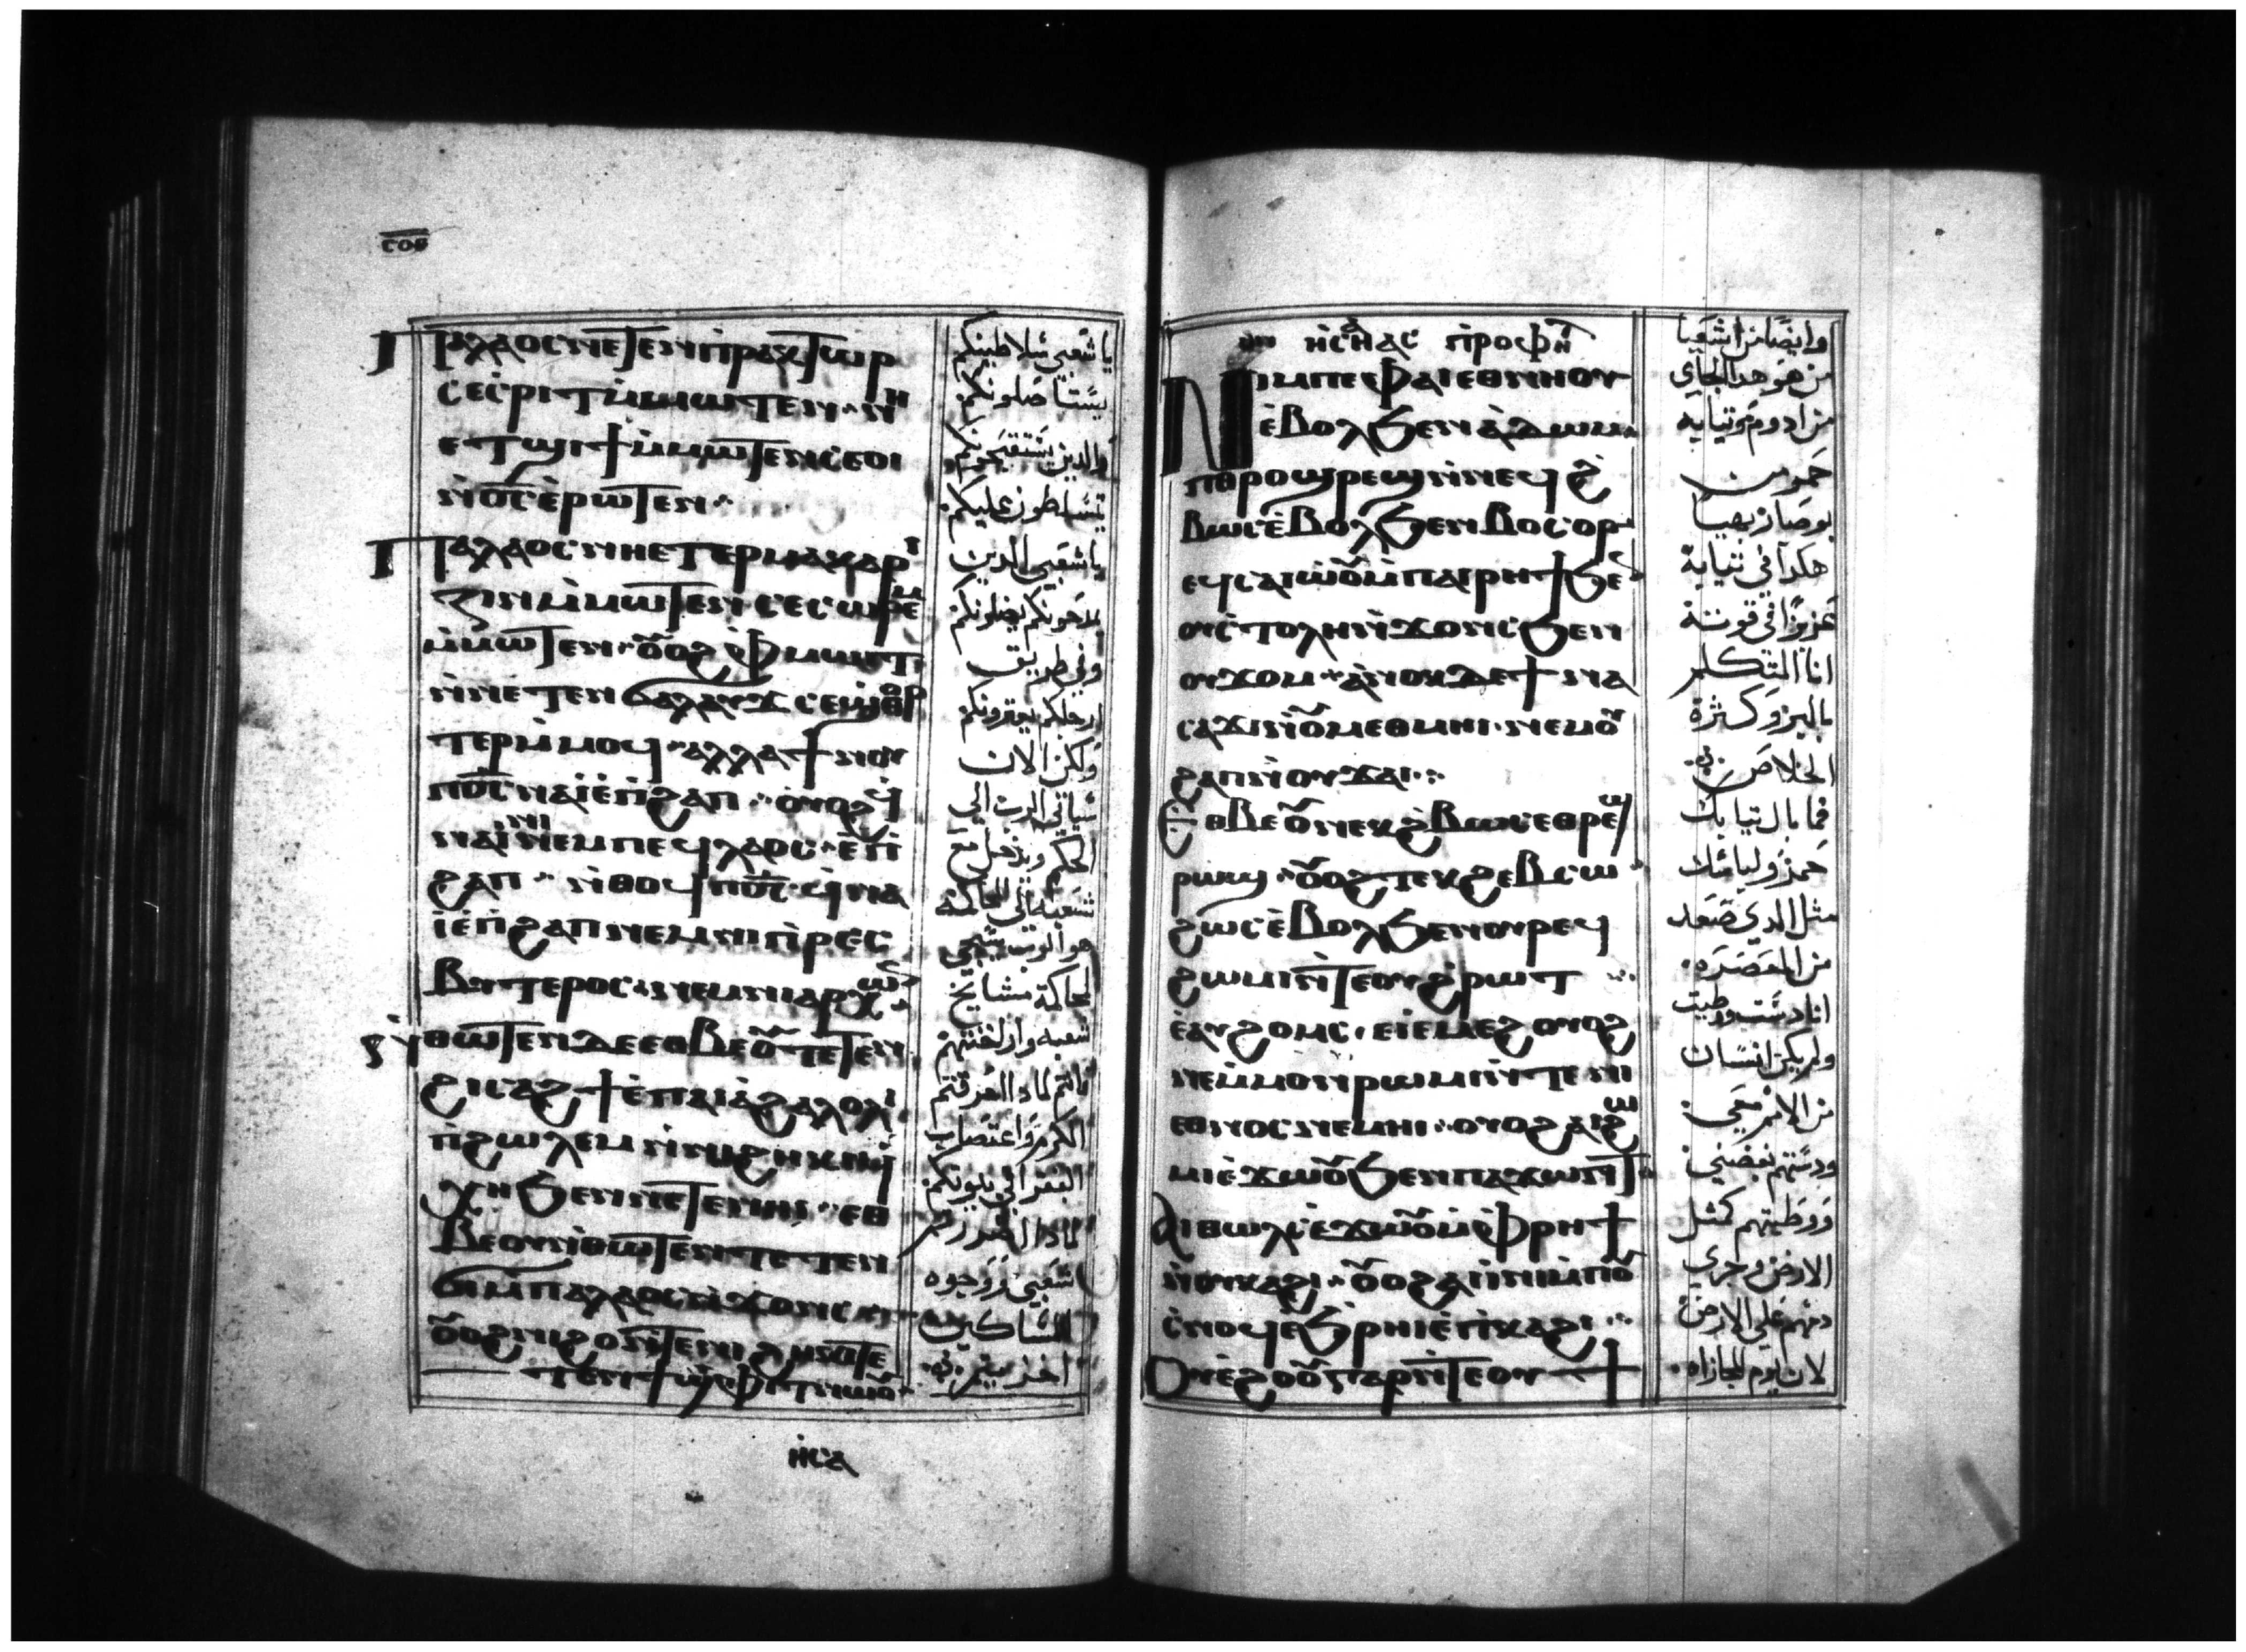 ⲥⲟⲃ
ⲡⲁⲗⲁⲟⲥ ⲛⲉⲧⲉⲛⲡⲣⲁⲕⲧⲱⲣ
ⲥⲉⲥⲣⲓⲧ ⲙⲙⲱⲧⲉⲛ ⲛⲏ
ⲉⲧϣⲓϯ ⲙⲙⲱⲧⲉⲛ ⲥⲉⲟⲓ
ⲛϭⲥ ⲉⲣⲱⲧⲉⲛ
ⲡⲁⲗⲁⲟⲥ ⲛⲏⲉⲧⲉⲣⲙⲁⲕⲁⲣⲓ
ⲍⲓⲛ ⲙⲙⲱⲧⲉⲛ ⲥⲉⲥⲱⲣⲉⲙ
ⲙⲙⲱⲧⲉⲛ ⲟⲩⲟϩ ⲫⲙⲱⲓⲧ
ⲛⲛⲉⲧⲉⲛϭⲁⲗⲁⲩϫ ⲥⲉϣⲑⲟⲣ
ⲧⲉⲣ ⲙⲙⲟϥ ⲁⲗⲗⲁ ϯⲛⲟⲩ
ⲡϭⲥ ⲛⲁⲓ ⲉⲡϩⲁⲡ ⲟⲩⲟϩ ϥ
ⲛⲁⲓ ⲛⲉⲙ ⲡⲉϥⲗⲁⲟⲥ ⲉⲡⲓ
ϩⲁⲡ ⲛⲑⲟϥ ⲡϭⲥ ϥⲛⲁ
ⲓ ⲉⲡϩⲁⲡ ⲛⲉⲙ ⲛⲓⲡⲣⲉⲥ
ⲃⲩⲧⲉⲣⲟⲥ ⲛⲉⲙ ⲛⲓⲁⲣⲭⲱⲛ
ⲛⲑⲱⲧⲉⲛ ⲇⲉ ⲉⲑⲃⲉⲟⲩ ⲧⲉⲧⲉⲛ
ϩⲓⲥⲁϩϯ ⲉⲡⲁⲓⲁϩⲁⲗⲟⲗⲓ
ⲡϩⲱⲗⲉⲙ ⲛⲛⲓϩⲏⲕⲓ ϥ
ⲭⲏ ϧⲉⲛ ⲛⲉⲧⲉⲛⲏⲓ ⲉⲑ
ⲃⲉⲟⲩ ⲛⲑⲱⲧⲉⲛ ⲧⲉⲧⲉⲛ
ϭⲓ ⲙⲡⲁⲗⲁⲟⲥ ⲛϫⲟⲛⲥ
ⲟⲩⲟϩ ⲛⲓϩⲟ ⲛⲧⲉ ⲛⲓϩⲏⲕⲓ ⲧⲉ
ⲧⲉⲛϯϣⲓⲡⲓ ⲛⲱⲟⲩ
ⲏⲥⲁ
يا شعبي سلاطينكم
يستاصلونكم
والدين يستقبحونكم
يتسلطون عليكم
يا شعبي الدين
يمدحونكم يضلونكم
وفي طريق
ارجلكم يعترونكم
ولكن الان
سياتي الرب الي
الحكم ويدخل مع
شعبه الي المحاكمة
هو الرب سيجي
لمحاكمة مشايخ
شعبه واراخنتهم
فانتم لمادا احرقتم
الكرم واغتصاب
الفقرا في بيوتكم
لمادا انتم
شعبي ووجوه
المساكين
اخزيتم
ⲏⲥⲁⲏⲁⲥ ⲡⲣⲟⲫⲏ
ⲛⲓⲙ ⲡⲉ ⲫⲁⲓ ⲉⲑⲛⲏⲟⲩ
ⲉⲃⲟⲗ ϧⲉⲛ ⲁⲇⲱⲙ
ⲡⲑⲣⲟϣⲣⲉϣ ⲛⲛⲉϥϩ
ⲃⲱⲥ ⲉⲃⲟⲗ ϧⲉⲛ ⲃⲟⲥⲟⲣ
ⲉϥⲥⲁⲓⲱⲟⲩ ⲙⲡⲁⲓⲣⲏϯ ϧⲉⲛ
ⲟⲩⲥⲧⲟⲗⲏ ⲛϫⲟⲛⲥ ϧⲉⲛ
ⲟⲩϫⲟⲙ ⲁⲛⲟⲕ ⲇⲉ ϯⲛⲁ
ⲥⲁϫⲓ ⲛⲟⲩⲙⲉⲑⲙⲏⲓ ⲛⲉⲙ ⲟⲩ
ϩⲁⲡ ⲛⲟⲩϫⲁⲓ
ⲉⲑⲃⲉⲟⲩ ⲛⲉⲕϩⲃⲱⲥ ⲉⲑⲣⲉϣ
ⲣⲱϣ ⲟⲩⲟϩ ⲧⲉⲕϩⲉⲃⲥⲱ
ϩⲱⲥ ⲉⲃⲟⲗ ϧⲉⲛ ⲟⲩⲣⲉϥ
ϩⲱⲙⲓ ⲛⲧⲉ ⲟⲩϩⲣⲱⲧ
ⲉⲁⲩϩⲟⲙⲥ ⲉϥⲙⲉϩ ⲟⲩⲟϩ
ⲛⲉ ⲙⲙⲟⲛ ⲣⲱⲙⲓ ⲛⲧⲉ ⲛⲓ
ⲉⲑⲛⲟⲥ ⲛⲉⲙⲏⲓ ⲟⲩⲟϩ ⲁⲓϩⲱ
ⲙⲓ ⲉϫⲱⲟⲩ ϧⲉⲛ ⲡⲁϫⲱⲛⲧ
ⲁⲓⲑⲱⲗⲥ ⲉϫⲱⲟⲩ ⲙⲫⲣⲏϯ
ⲛⲟⲩⲕⲁϩⲓ ⲟⲩⲟϩ ⲁⲓⲓⲛⲓ ⲙⲡⲟⲩ
ⲥⲛⲟϥ ⲉϧⲣⲏⲓ ⲉⲡⲕⲁϩⲓ
ⲟⲩⲉϩⲟⲟⲩ ⲅⲁⲣ ⲛⲧⲉ ⲟⲩϯ
وايضا من اشعيا
من هو هدا الجاي
من ادوم وثيابه
حمر من
بوصار بهيا
هكدا في ثيابه
عزيزا في قوته
انا المتكلم
بالبر وكثرة
الخلاص
فما بال ثيابك
حمر ولباسك
مثل الدي صعد
من المعصره
انا دست وطيت
ولم يكن انسان
من الامم معي
ودستهم بغضبي
ووطيتهم كمثل
الارض وجري
دمهم علي الارض
لان يوم المجازاه